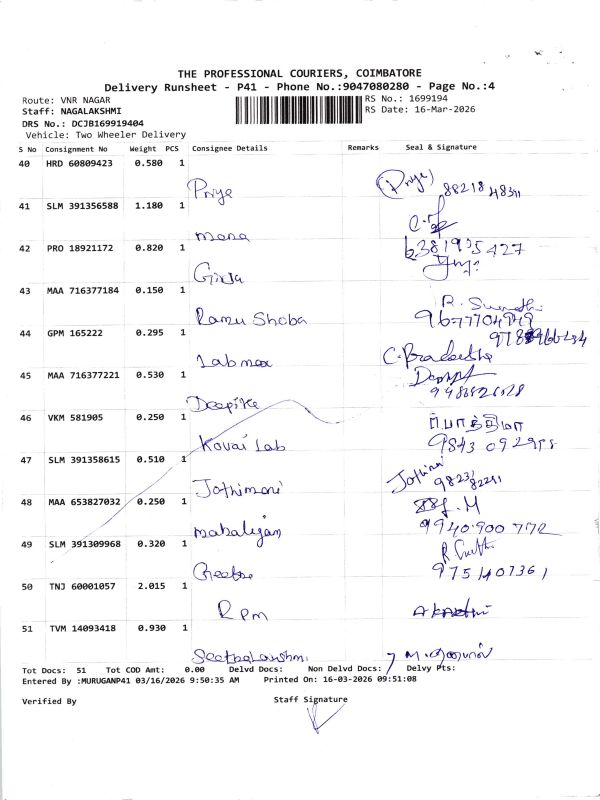 THE PROFESSIONAL COURIERS, COIMBATORE
Delivery Runsheet - P41 - Phone No.:9047080280 - Page No.:4
Route: VNR NAGAR
RS No.: 1699194
Staff: NAGALAKSHMI
RS Date: 16-Mar-2026
DRS No.: DCJB169919404
Vehicle: Two Wheeler Delivery
S No Consignment No Weight PCS Consignee Details Remarks Seal & Signature
40 HRD 60809423 0.580 1
Priye (Priye) 88218 48311
41 SLM 391356588 1.180 1
mana
42 PRO 18921172 0.820 1
6381935427
Girja
43 MAA 716377184 0.150 1
Ramu Shoba 9677704949
44 GPM 165222 0.295 1
Labmax
45 MAA 716377221 0.530 1
Deepike
46 VKM 581905 0.250 1
Kovai Lab
47 SLM 391358615 0.510 1
Jothimani
48 MAA 653827032 0.250 1
mahalingam 9940900772
49 SLM 391309968 0.320 1
Geetha 9751407361
50 TNJ 60001057 2.015 1
Rpm
51 TVM 14093418 0.930 1
Seethalakshmi
Tot Docs: 51 Tot COD Amt: 0.00 Delvd Docs: Non Delvd Docs: Delvy Pts:
Entered By :MURUGANP41 03/16/2026 9:50:35 AM Printed On: 16-03-2026 09:51:08
Verified By Staff Signature